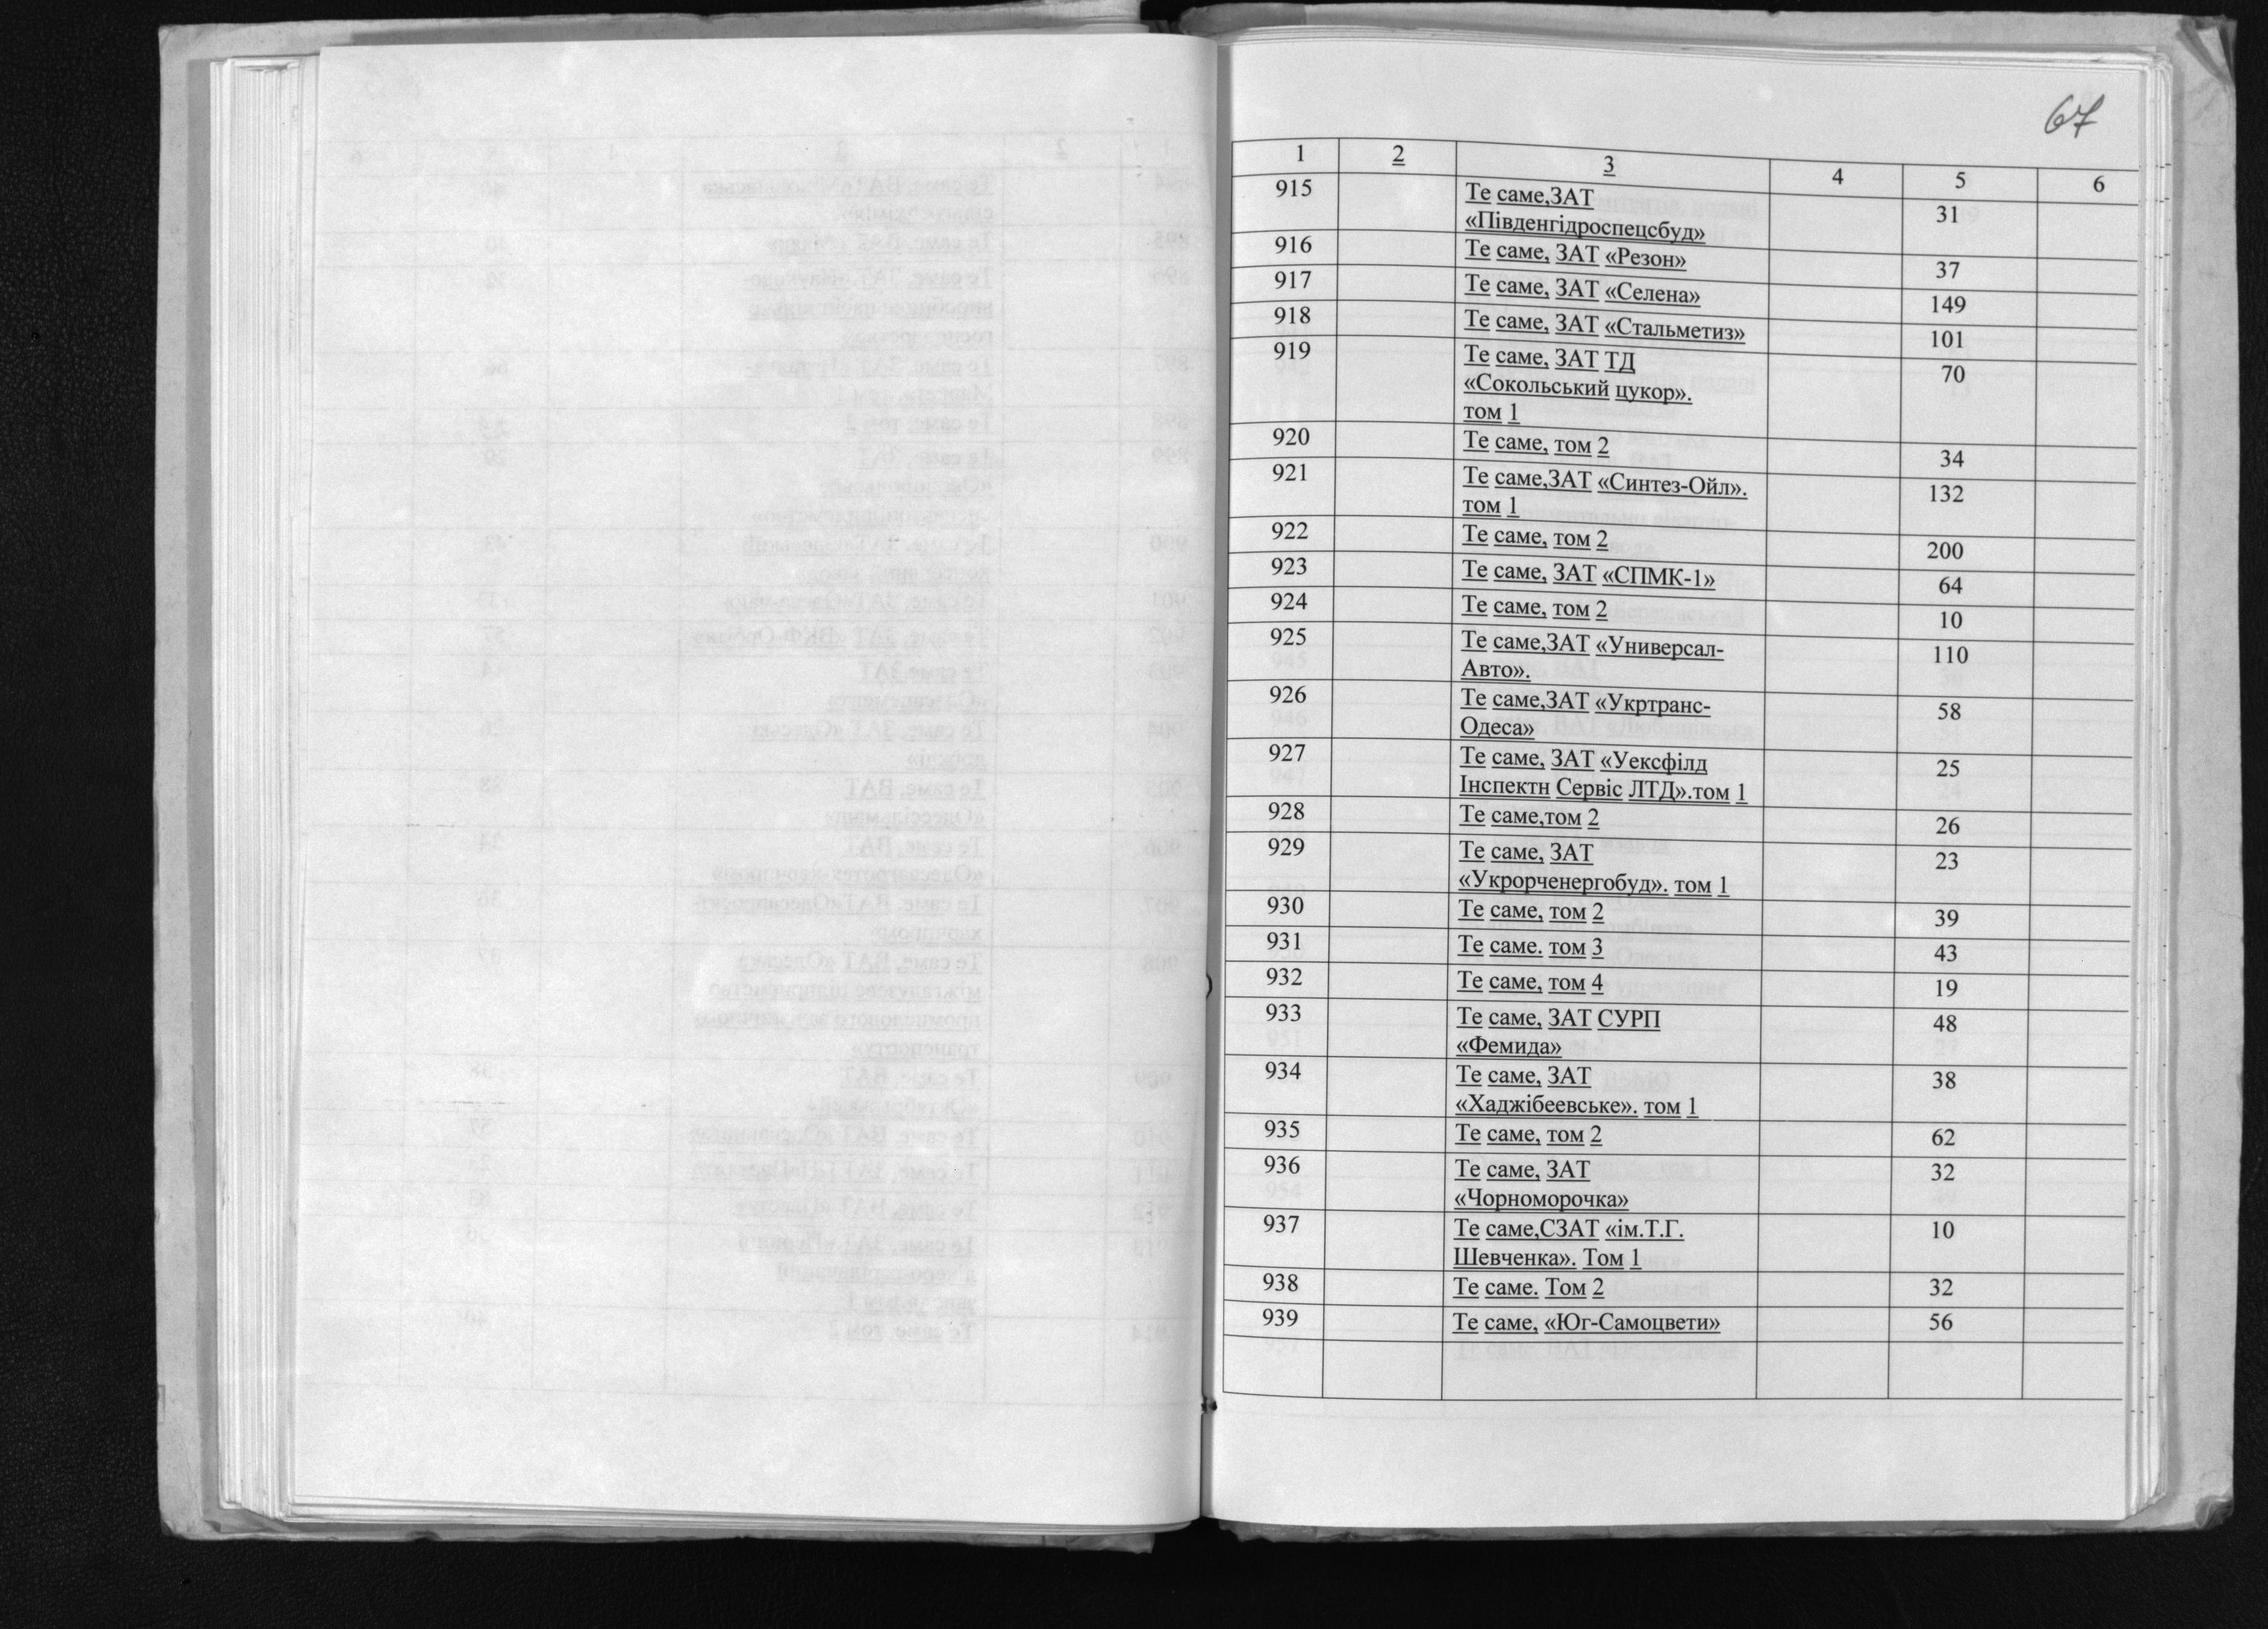 67
1 2 3 4 5 6
915 Те саме,ЗАТ 31
«Південгідроспецсбуд»
916 Те саме, ЗАТ «Резон» 37
917 Те саме, ЗАТ «Селена» 149
918 Те саме, ЗАТ «Стальметиз» 101
919 Те саме, ЗАТ ТД 70
«Сокольський цукор».
том 1
920 Те саме, том 2 34
921 Те саме,ЗАТ «Синтез-Ойл». 132
том 1
922 Те саме, том 2 200
923 Те саме, ЗАТ «СПМК-1» 64
924 Те саме, том 2 10
925 Те саме,ЗАТ «Универсал- 110
Авто».
926 Те саме,ЗАТ «Укртранс- 58
Одеса»
927 Те саме, ЗАТ «Уексфілд 25
Інспектн Сервіс ЛТД».том 1
928 Те саме,том 2 26
929 Те саме, ЗАТ 23
«Укрорченергобуд». том 1
930 Те саме, том 2 39
931 Те саме. том 3 43
932 Те саме, том 4 19
933 Те саме, ЗАТ СУРП 48
«Фемида»
934 Те саме, ЗАТ 38
«Хаджібеевське». том 1
935 Те саме, том 2 62
936 Те саме, ЗАТ 32
«Чорноморочка»
937 Те саме,СЗАТ «ім.Т.Г. 10
Шевченка». Том 1
938 Те саме. Том 2 32
939 Те саме, «Юг-Самоцвети» 56